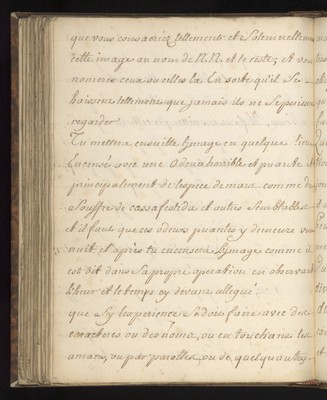 que vous consacriez tellement et solennellem
cette image au nom de N.N. et le reste; et vou
nomerés ceux ou celles la En sorte qu'il se
haissent tellement que jamais ils ne se puissen
regarder
Tu mettras ensuitte l'jmage en quelque lieu
Encensé avec une odeur horrible et puante et
principalement de l'espece de mars comme du
souffre de cassafoetida et autres semblables
et il faut que ces odeurs puantes y demeure un
nuit et apres tu encensera l'jmage comme il
est dit dans sa propre operation en observant
l'heur et le temps cy devant allegué.
que sy l'experience se doit faire avec des
caracteres ou des noms, ou en touchant les
amans, ou par parolles, ou de quelqu'autre